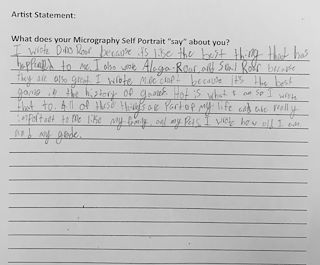 Artist Statement:
What does your Micrography Self Portrait "say" about you?
I wrote Dino Roar because its like the best thing that has
happened to me. I also wrote Alaga-Roar, and Soul Roar because
they are also great. I wrote Minecraft because it's the best
game in the history of games. Hot is what I am so I wrote
that to. All of these things are part of my life and are really
important to me like my family and my Pets. I wrote how old I am
and my grade.